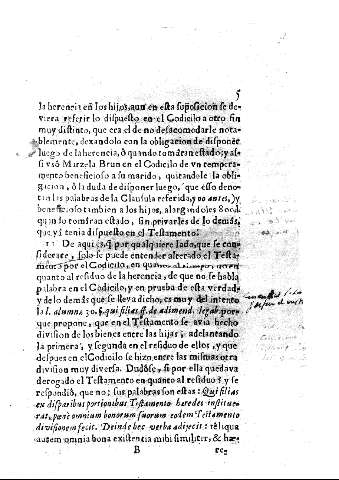 5
la herencia en los hijos, aun en esta suposicion se de-
viera referir lo dispuesto en el Codicilo a otro fin
muy distinto, que era el de no desacomodarle nota-
blemente, dexandolo con la obligacion de disponer
luego de la herencia, ò quando tomaran estado; y as-
si vsò Marzela Brun en el Codicilo de vn tempera-
mento beneficioso a su marido, quitandole la obli-
gacion, ò la duda de disponer luego, que esso deno-
tan las palabras de la Clausula referida, y no antes, y
beneficioso tambien a los hijos, alargandoles 800.
quando tomassen estado, sin privarles de lo demàs,
que yà tenia dispuesto en el Testamento.
11 De aqui es, q̃ por qualquiere lado, que se con-
siderare, solo se puede entender alterado el Testa-
mento por el Codicilo, en quanto al tiempo,
quanto al residuo de la herencia, de que no se habla
palabra en el Codicilo, y en prueba de esta verdad,
y de lo demàs que se lleva dicho, es muy del intento
la l. alumna 30. §. qui filias ff. de adimend. legat. por-
que propone, que en el Testamento se avia hecho
division de los bienes entre las hijas, adelantando
la primera, y segunda en el residuo de ellos, y que
despues en el Codicilo se hizo entre las mismas otra
division muy diversa. Dudòse, si por ella quedava
derogado el Testamento en quanto al residuo? y se
respondiò, que no; sus palabras son estas: Qui filias
ex disparibus portionibus Testamento heredes institue-
rat, penè omnium bonorum suorum eodem Testamento
divisionem fecit. Deinde hec verba adjecit: reliqua
autem omnia bona existentia mihi similiter, & hæ-
B
re-